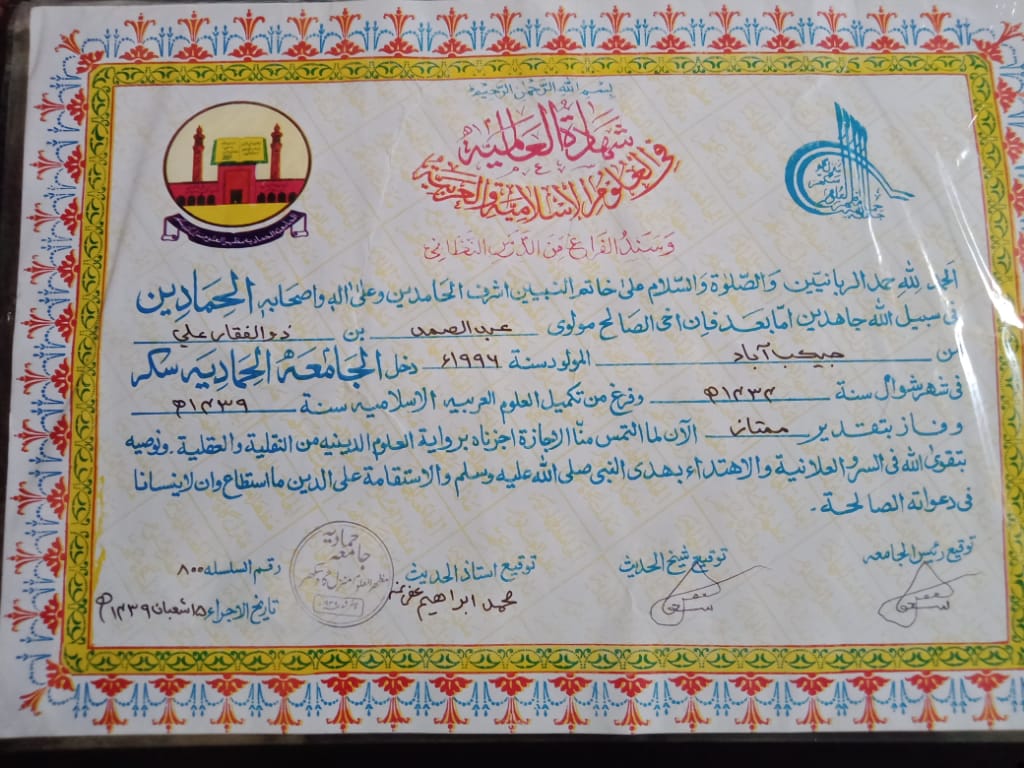 بسم الله الرحمن الرحيم
شهادة العالمية
في العلوم الاسلامية والعربية
وسند الفراغ من الدرس النظامي
الحمد لله حمد الربانيين والصلوة والسلام على خاتم النبيين اشرف الحامدين وعلى اله واصحابه الحمادين
في سبيل الله جاهدين اما بعد فان اخى الصالح مولوى عبد الصمد بن ذوالفقار علي
من جيكب آباد المولود سنة ۱۹۹۶ء دخل الجامعة الحمادية سكر
في شهر شوال سنة ۱۴۳۴ھ وفرغ من تكميل العلوم العربيه الاسلاميه سنة ۱۴۳۹ھ
وفاز بتقدير ممتاز الآن لما التمس منّا الاجازة اجزناه برواية العلوم الدينيه من النقلية والعقلية . ونوصيه
بتقوى الله فى السر والعلانية والاهتداء بهدى النبى صلى الله عليه وسلم والاستقامة على الدين ما استطاع وان لا ينسانا
فى دعواته الصالحة .
توقيع رئيس الجامعه
توقيع شيخ الحديث
توقيع استاذ الحديث
محمد ابراهيم
رقم السلسله ۸۰۰
تاريخ الاجراء ۱۵ شعبان ۱۴۳۹ھ
جامعه حماديه
مظهر العلوم منزل گاه سكهر